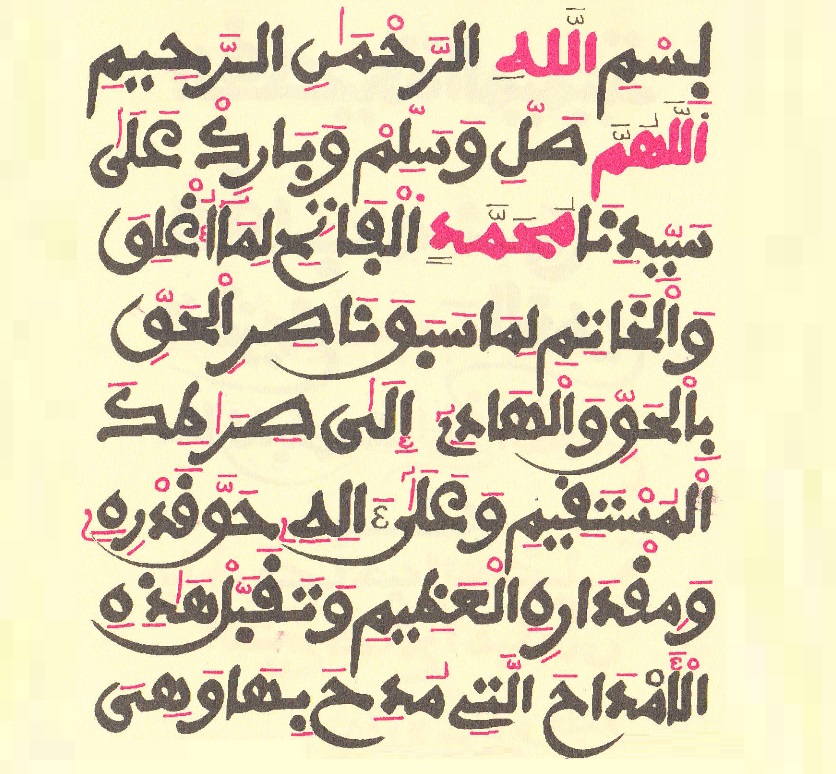 بِسْمِ اللَّهِ الرَّحْمَٰنِ الرَّحِيمِ
اَللَّهُمَّ صَلِّ وَسَلِّمْ وَبَارِكْ عَلَىٰ
سَيِّدِنَا مُحَمَّدٍ الْفَاتِحِ لِمَا أُغْلِقَ
وَالْخَاتِمِ لِمَا سَبَقَ نَاصِرِ الْحَقِّ
بِالْحَقِّ وَالْهَادِي إِلَىٰ صِرَاطِكَ
الْمُسْتَقِيمِ وَعَلَىٰ ءَالِهِ حَقَّ قَدْرِهِ
وَمِقْدَارِهِ الْعَظِيمِ وَتَقَبَّلْ هَٰذِهِ
الْأَمْدَاحَ الَّتِي مَدَحَ بِهَا وَهِيَ